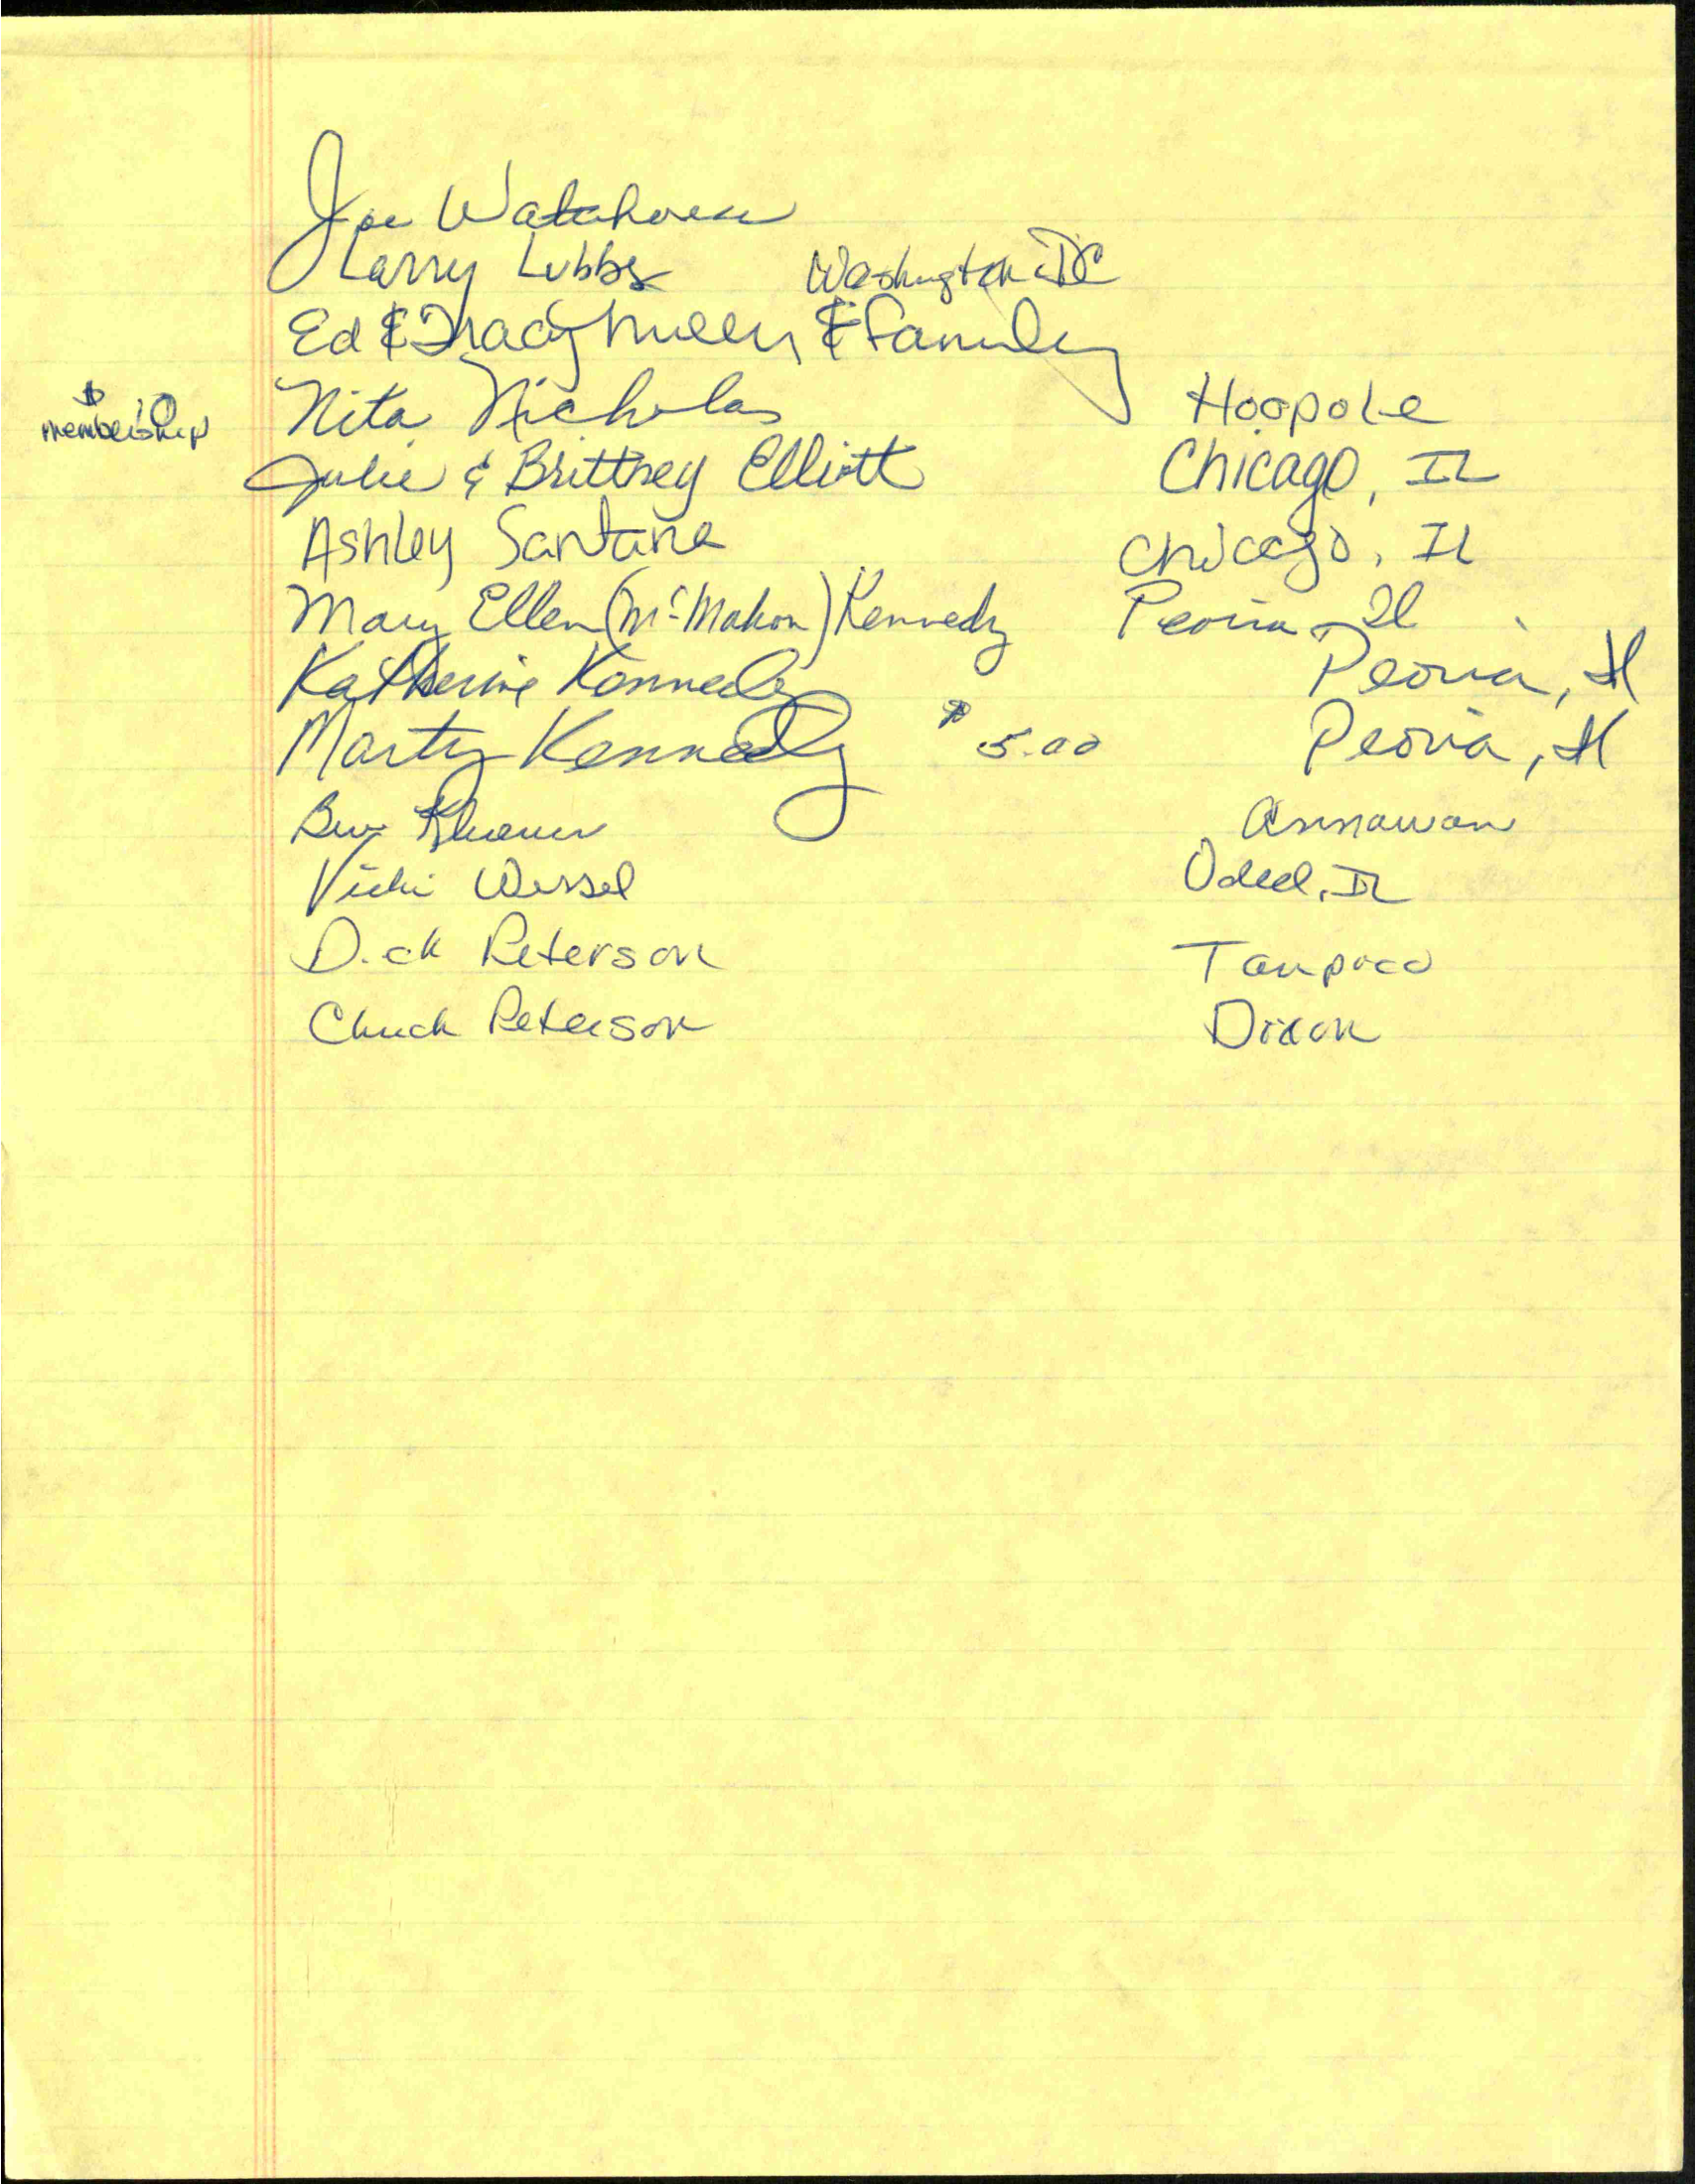 Joe
Larry Lubbs Washington DC
Ed & Tracy & Family
$ 10
membership Nita Nicholas Hoopole
Julie & Brittney Elliott Chicago, IL
Ashley Santana Chicago, IL
Mary Ellen (McMahon) Kennedy Peoria, Il
Katherine Kennedy Peoria, Il
Marty Kennedy $ 5.00 Peoria, Il
Bev Annawan
Vicki Wessel Odell, IL
Dick Peterson Tampico
Chuck Peterson Dixon